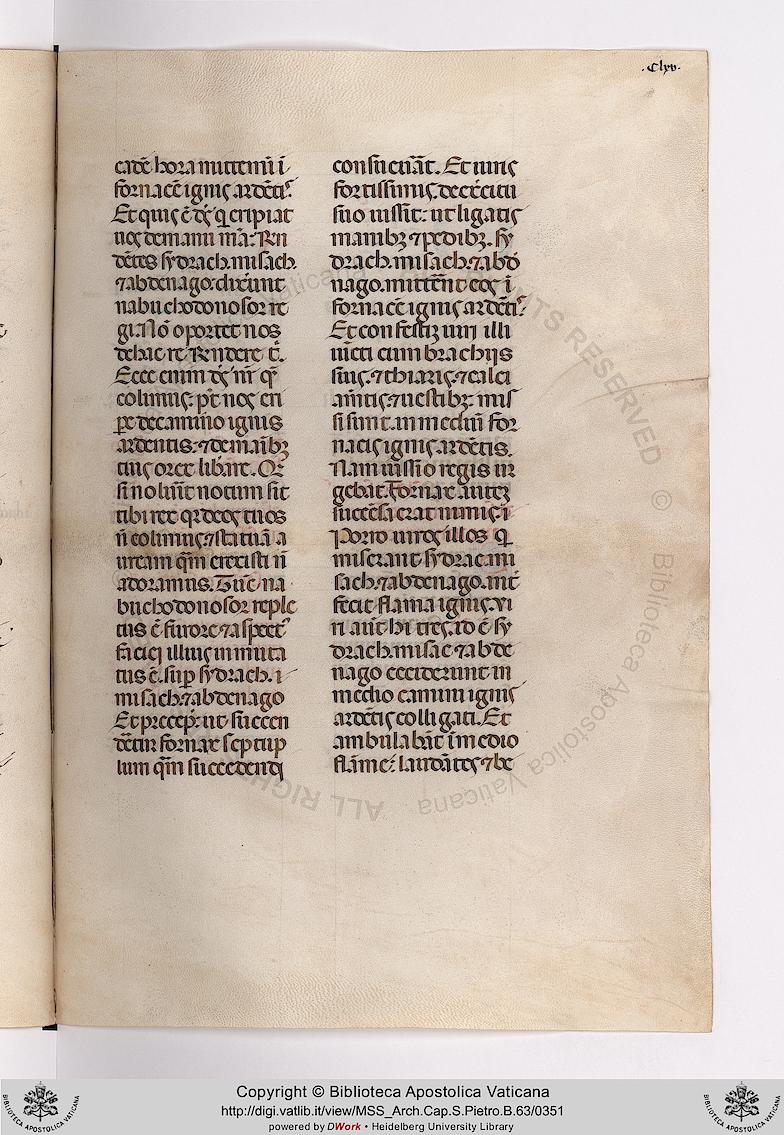 .Clxv.
cadē hora mittemī ī
fornacē ignis ardētı᷒.
Et quis ē dꝰ q̇ eripiat
uos de manu mā: Rn̄
dētes sydrach. misach.
⁊ abdenago: dixēunt
nabuchodonosor re
gi. Nō oportet nos
de hac re Rn̄dere t̄.
Ecce enim dꝰ nr̄ qᷓ
colimus: pt̄ nos eri
ꝑe de camino ignis
ardentis: ⁊ de manibꝫ
tuis o rex lib̄are. Qꝛ
si nolūīt notum sit
tibi rex qꝛ deos tuos
n̄ colimus. ⁊ statuā a
uream qᷓm erexisti n̄
adoramus. Tūc na
buchodonosor reple
tus ē furore ⁊ aspect᷒
faciei illius inmuta
tus ē. suꝑ sydrach.
misach. ⁊ abdenago
Et precep̄: ut succen
dētur fornax septup
lum qᷓm succedendi
consueuāt. Et uiris
fortissimis. de exērcitu
suo iussīt: ut ligatis
manibꝫ ⁊ pedibꝫ. sy
drach. misach. ⁊ abdē
nago. mittēnt eos ī
fornacē ignis ardētı᷒.
Et confestiꝫ uiri illi
uīcti cum brachijs
suis. ⁊ thiaris. ⁊ calci
am̄tis. ⁊ uestibꝫ. mis
si sunt. in mediū for
nacis ignis ardētis.
Nam iussio regis ur
gebat. Fornax autēꝫ
succēsa erat nimis.
Porro uiros illos q̇
miserant sydrac mi
sach. ⁊ abdenago. int̄
fecit flama ignis. Vi
ri aūt hi tres. id ē sy
drach. misac ⁊ abde
nago ceciderunt in
medio camini ignis
ardētis colligati. Et
ambulabāt ī medio
flāme: laudātes ⁊ be
Copyright © Biblioteca Apostolica Vaticana
http://digi.vatlib.it/view/MSS_Arch.Cap.S.Pietro.B.63/0351
powered by DWork • Heidelberg University Library
BIBLIOTECA APOSTOLICA VATICANA
BIBLIOTECA APOSTOLICA VATICANA
ALL RIGHTS RESERVED © Biblioteca Apostolica Vaticana